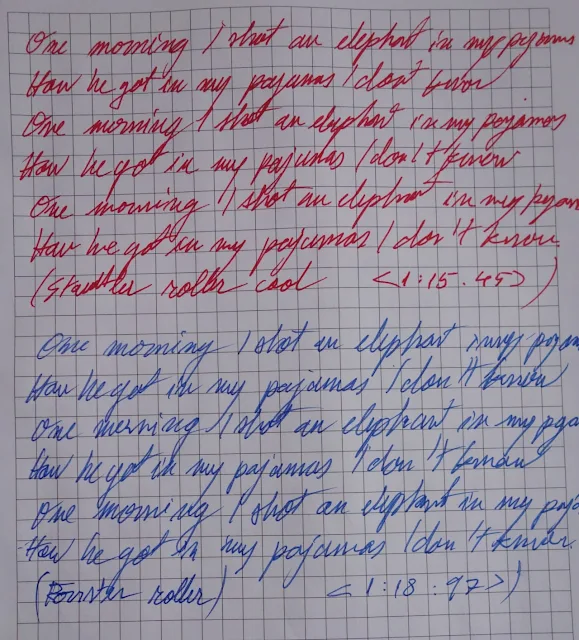 One morning I shot an elephant in my pajamas
How he got in my pajamas I don't know
One morning I shot an elephant in my pajamas
How he got in my pajamas I don't know
One morning I shot an elephant in my pyjam
How he got in my pajamas I don't know.
(Staedtler roller cool <1:15.45>)
One morning I shot an elephant in my pajam
How he got in my pajamas I don't know
One morning I shot an elephant in my paja
How he got in my pajamas I don't know
One morning I shot an elephant in my paja
How he got in my pajamas I don't know.
( roller) <1:18:97>)